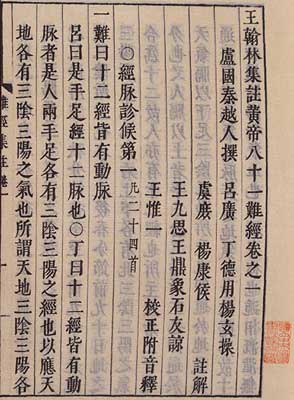 王翰林集註黃帝八十一難經卷之一
盧國秦越人撰 呂廣 丁德用 楊玄操
虞庶 楊康侯 註解
王九思 王鼎象 石友諒
王惟一 校正附音釋
○經脉診候第一 凡二十四首
一難曰十二經皆有動脉
呂曰是手足經十二脉也○丁曰十二經皆有動
脉者是人兩手足各有三陰三陽之經也以應天
地各有三陰三陽之氣也所謂天地三陰三陽各
難經集注卷一